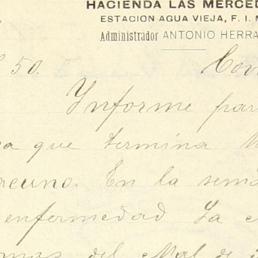 HACIENDA LAS MERCED
ESTACION AGUA VIEJA, F. I. M
Administrador ANTONIO HERRA
50. Cov
Ynforme par
a que termina
En la sem
enfermedad La
del Mal de